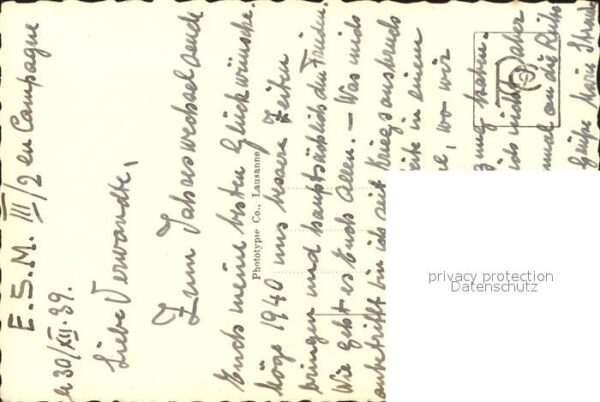 E.S.M. III/2 en Campagne
le 30/XII.39.
Liebe Verwandte,
Zum Jahreswechsel sende
Euch meine besten Glückwünsche.
Möge 1940 uns bessere Zeiten
bringen und hauptsächlich den Frieden.
Wie geht es Euch allen. – Was mich
anbetrifft bin ich seit Kriegsausbruch
in einem
wo wir
haben.
nicht
mal an die Reihe
Grüsse
Phototypie Co., Lausanne
privacy protection
Datenschutz